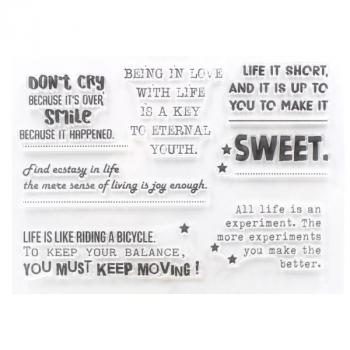 DON'T CRY
BECAUSE IT'S OVER,
SMILE
BECAUSE IT HAPPENED.
BEING IN LOVE
WITH LIFE
IS A KEY
TO ETERNAL
YOUTH.
LIFE IT SHORT,
AND IT IS UP TO
YOU TO MAKE IT
SWEET.
Find ecstasy in life
the mere sense of living is joy enough.
LIFE IS LIKE RIDING A BICYCLE.
TO KEEP YOUR BALANCE,
YOU MUST KEEP MOVING!
All life is an
experiment. The
more experiments
you make the
better.